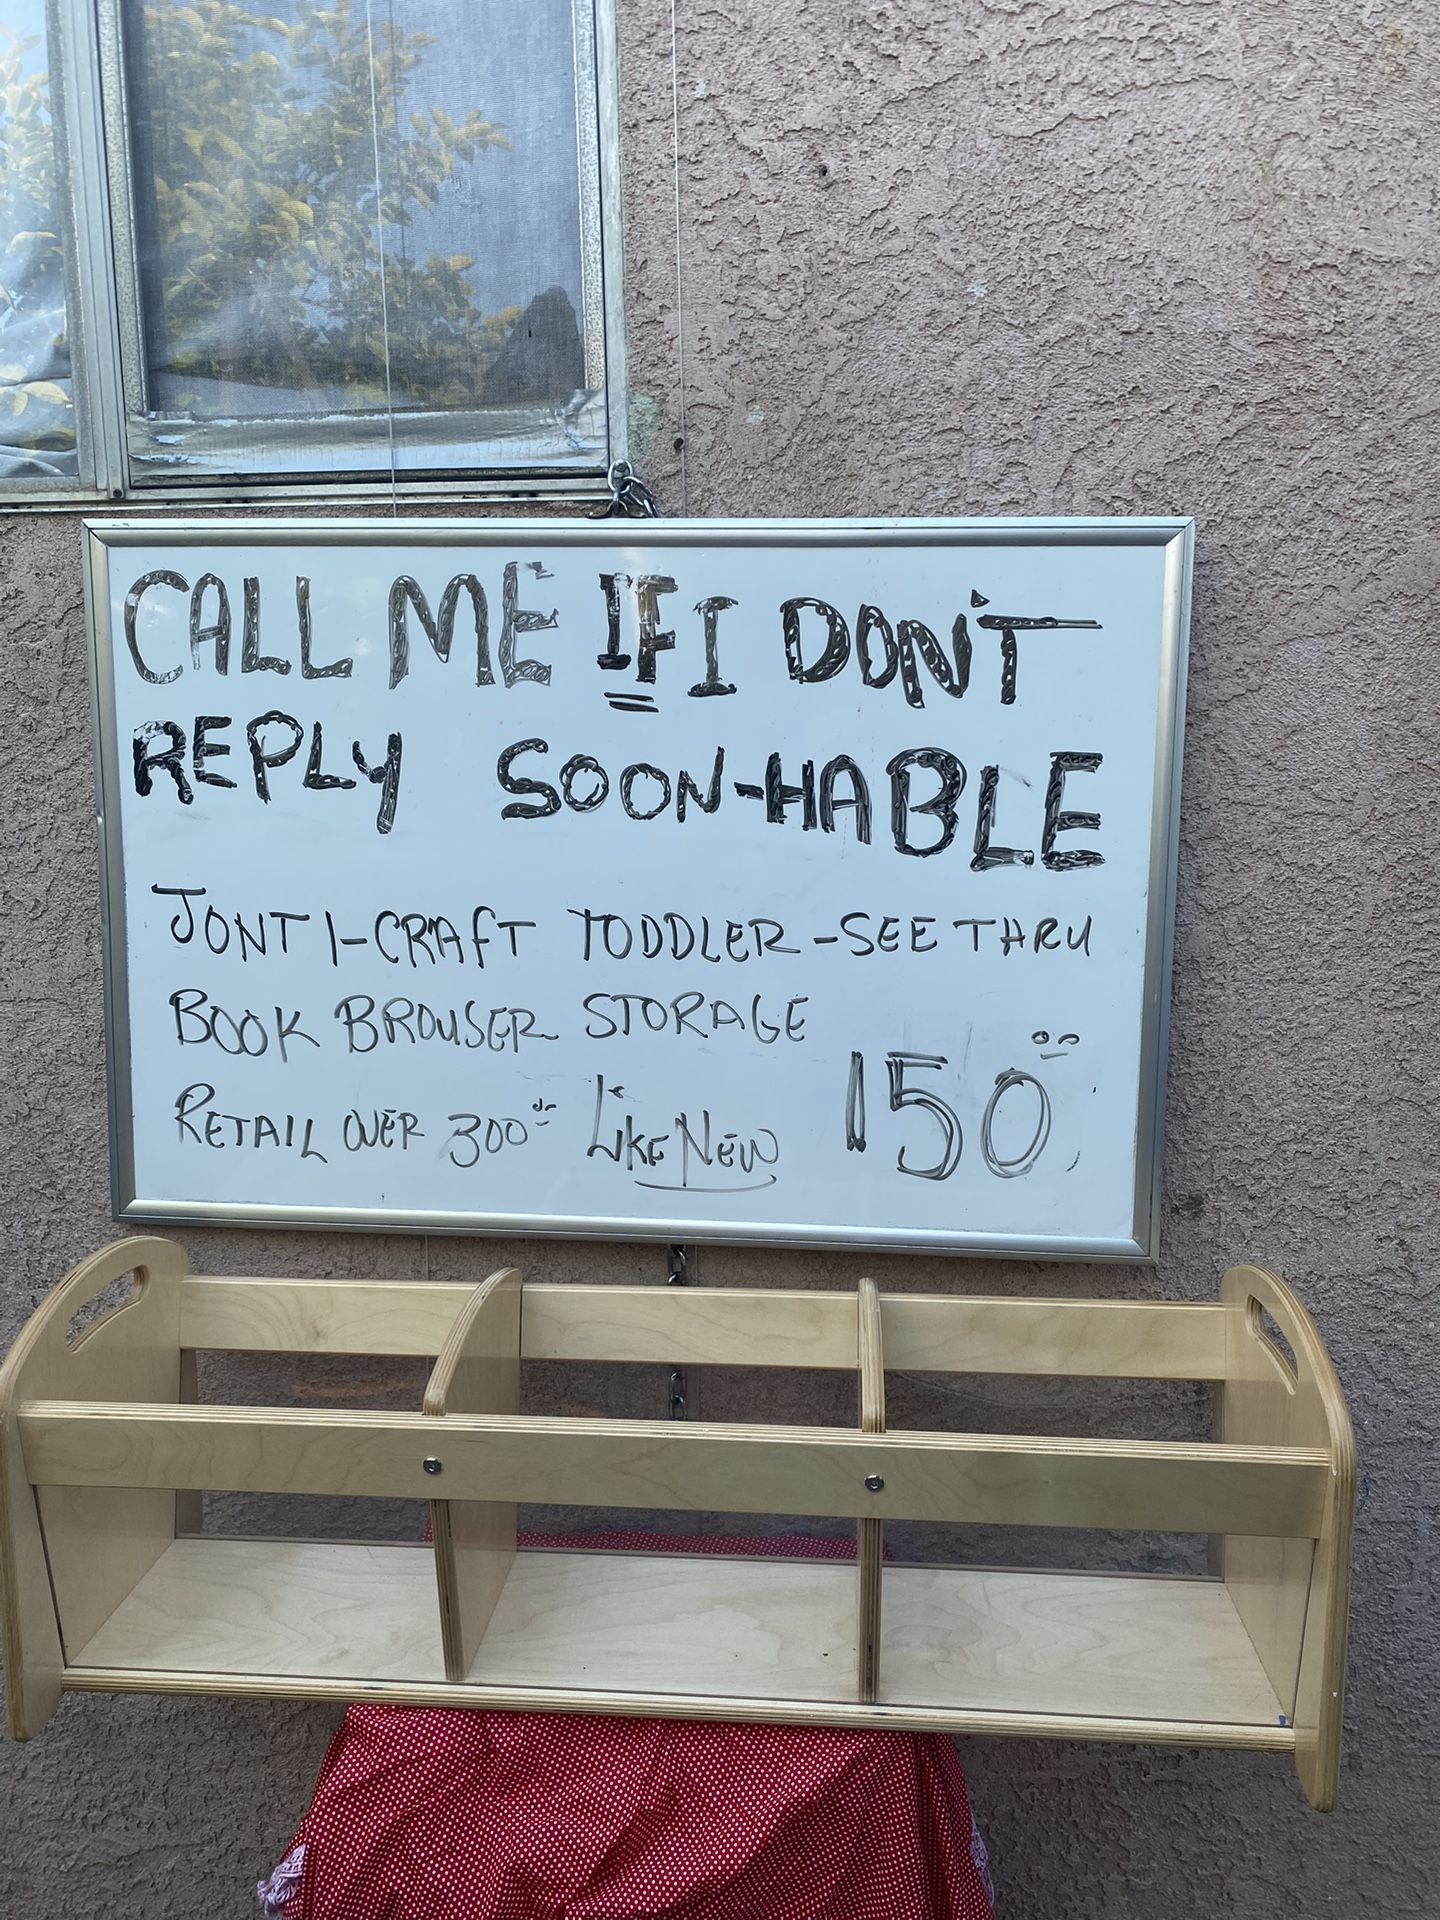 CALL ME IF I DON'T
REPLY SOON-HABLE
JONTI-CRAFT TODDLER-SEE THRU
BOOK BROUSER STORAGE
RETAIL OVER 300 LIKE NEW 150